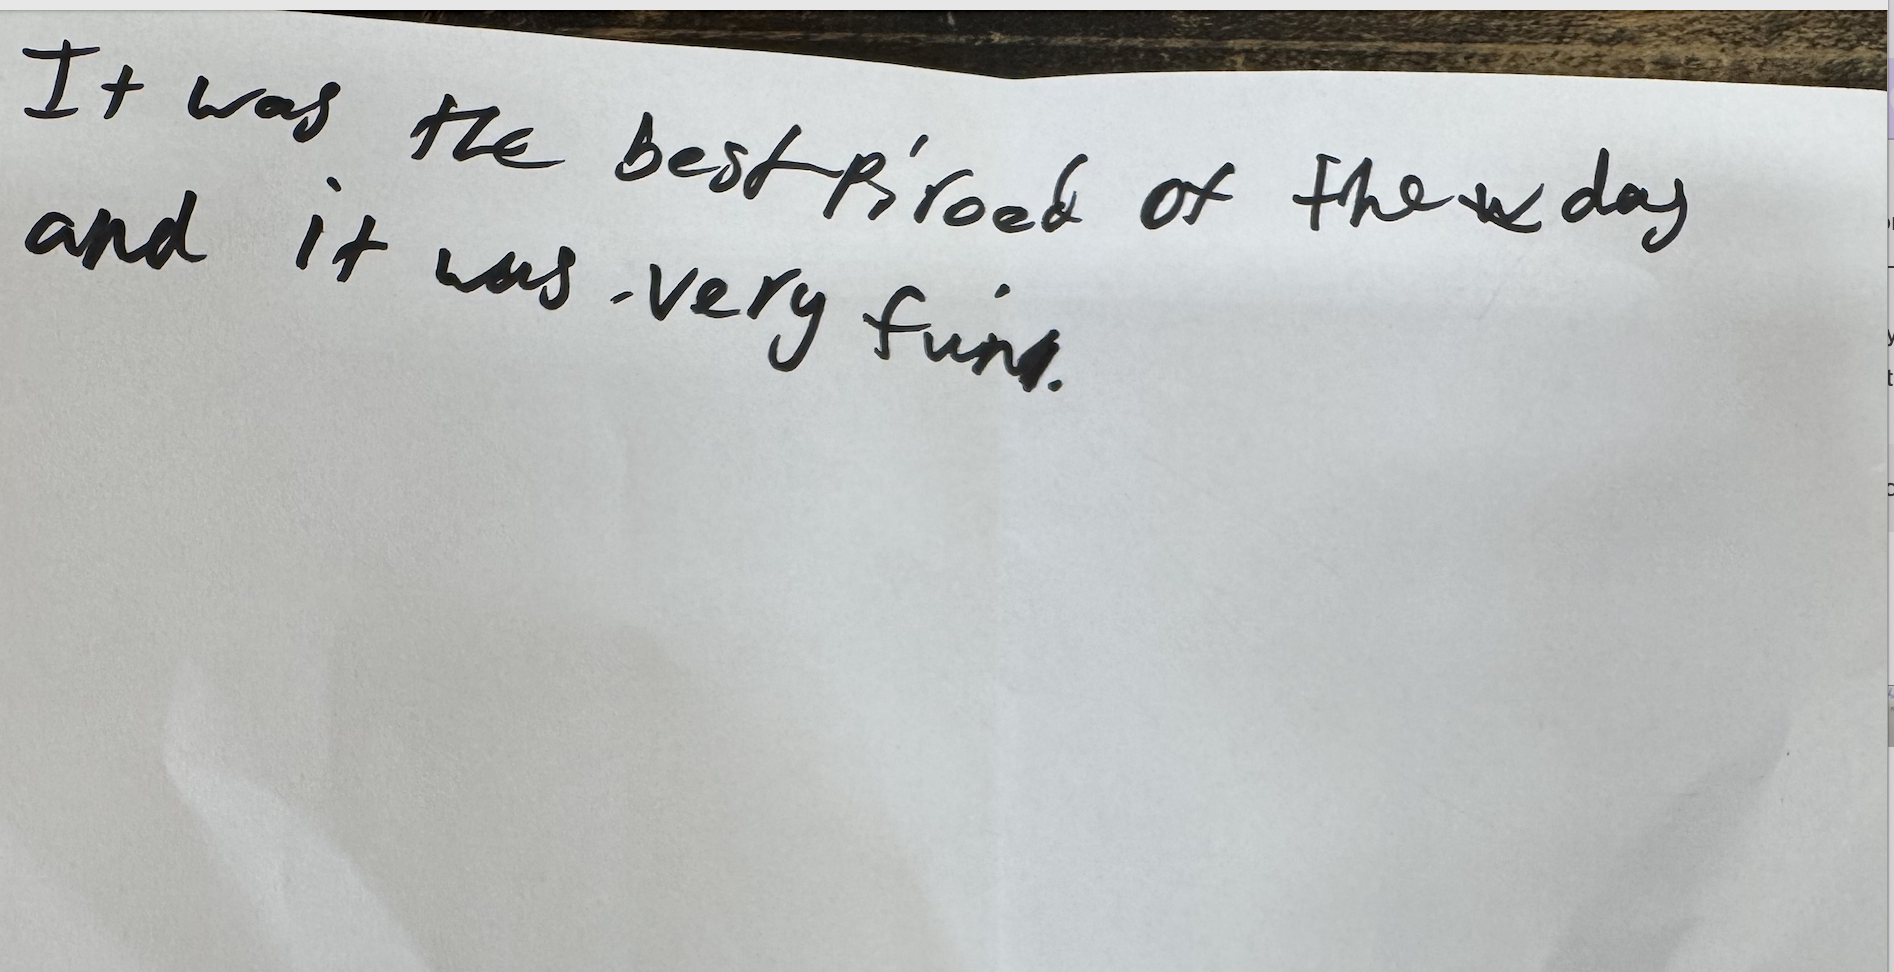 It was the best piroed of the day
and it was very fun.